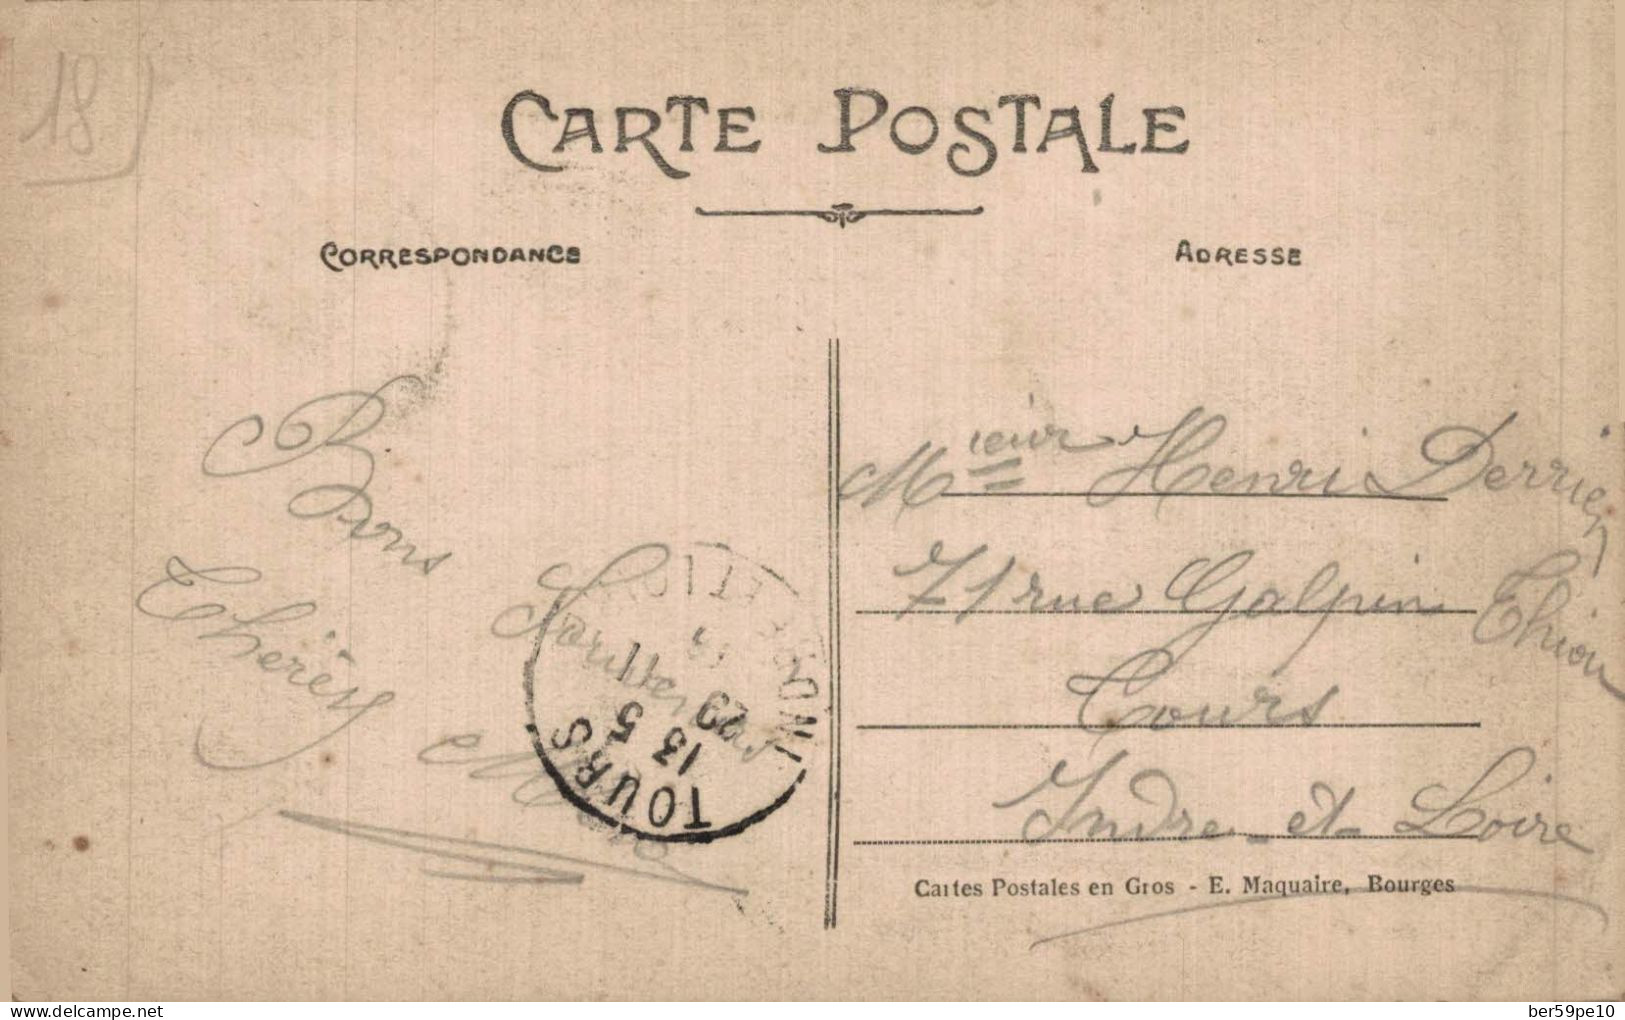 18
CARTE POSTALE
CORRESPONDANCE
ADRESSE
Bons
Souvenirs
Thérèse
M
TOURS
13 5
11
INDRE-ET-LOIRE
Msieur Henri Derrien
71 rue Galpin Thiou
Tours
Indre-et-Loire
Cartes Postales en Gros - E. Maquaire, Bourges
delcampe.net
ber59pe10